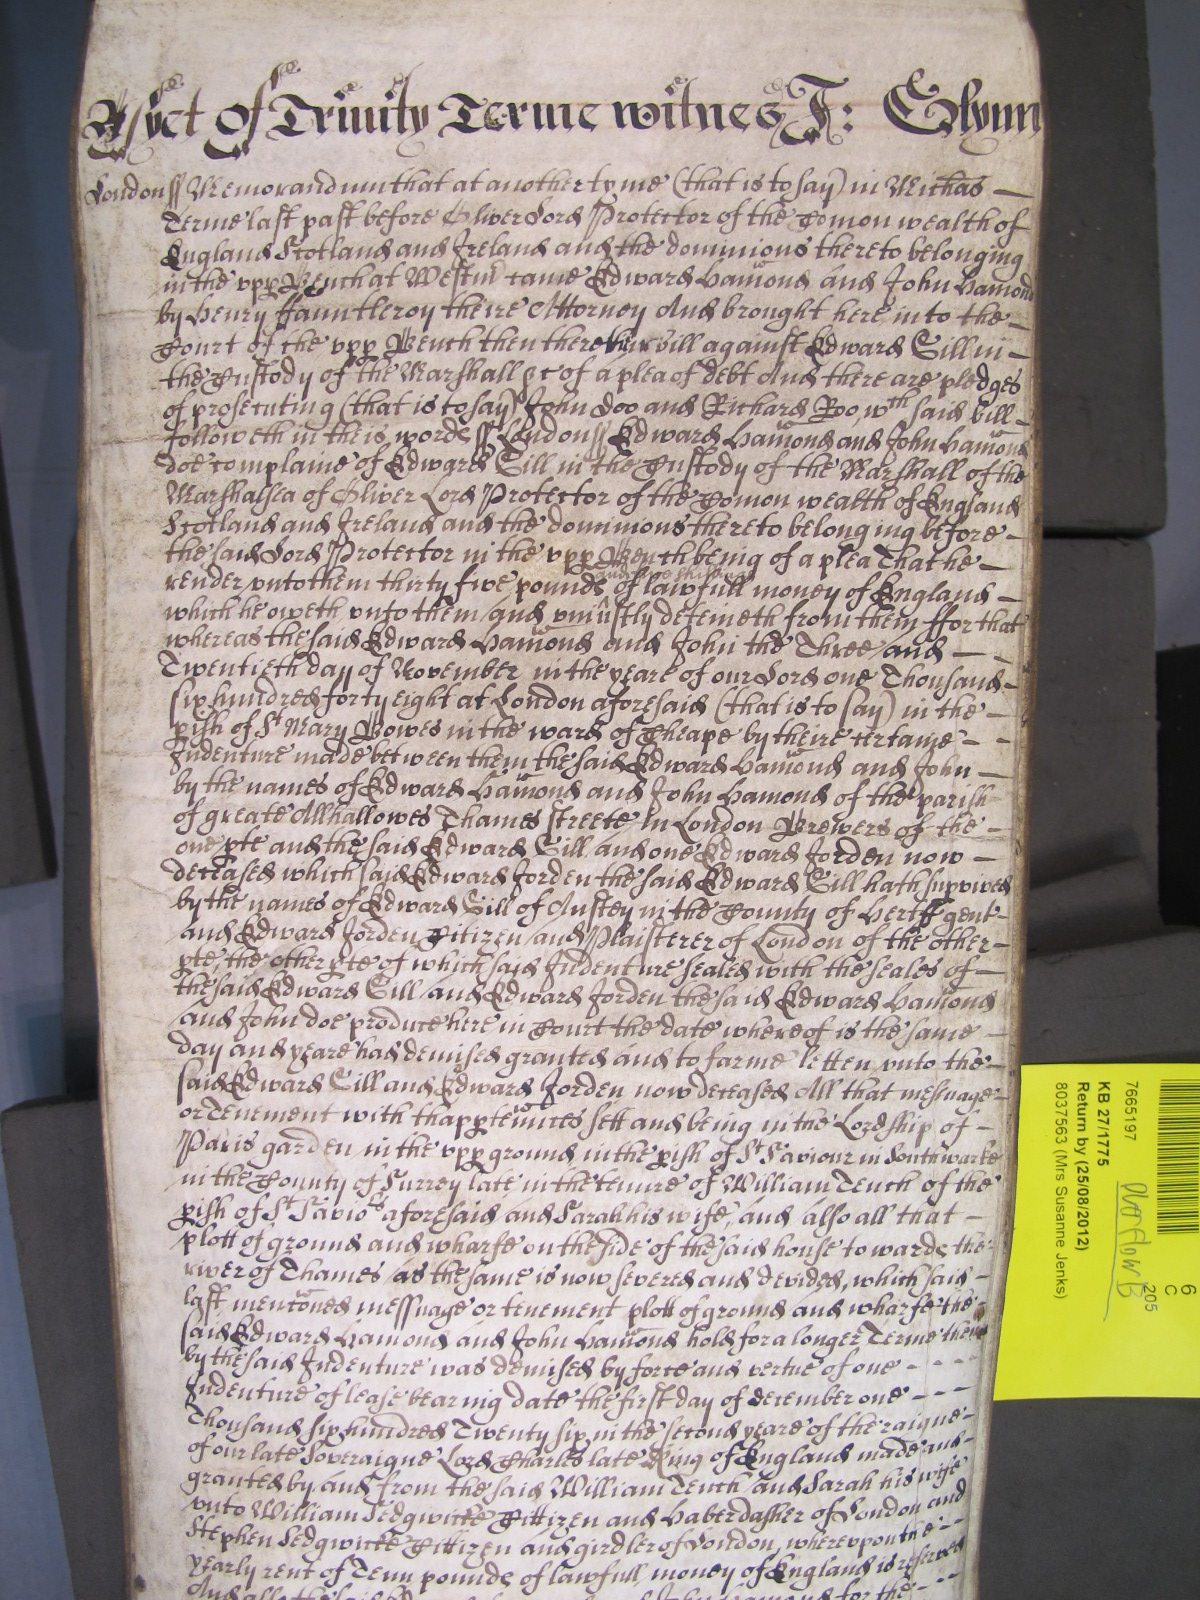 Yet of Trinity Terme witnes J: Glynn
London ss Memorandum that at another tyme (that is to say) in Michas
Terme last past before Oliver Lord Protector of the Comon wealth of
England Scotland and Ireland and the dominions thereto belonging
in the vpp Bench at Westm came Edward Hamond and John Hamond
by Henry ffauntleroy theire Attorney And brought here into the
Court of the vpp Bench then there their bill against Edward Gill in
the Custody of the Marshall &c of a plea of debt And there are pledges
of prosecuting (that is to say) John Doo and Richard Roo, wch said bill
followeth in theis words ss London ss Edward Hamond and John Hamond
doe complaine of Edward Gill in the Custody of the Marshall of the
Marshalsea of Oliver Lord Protector of the Comon wealth of England
Scotland and Ireland and the dominions thereto belonging before
the said Lord Protector in the vpp Bench being of a plea That he
render vnto them thirty five pounds of lawfull money of England
which he oweth vnto them and vniustly deteineth from them ffor that
whereas the said Edward Hamond and John the Three and
Twentieth day of November in the yeare of our Lord one Thousand
six hundred forty eight at London aforesaid (that is to say) in the
pish of St Mary Bowe in the ward of Cheape by theire certaine
Indenture made betweene them the said Edward Hamond and John
by the names of Edward Hamond and John Hamond of the parish
of greate Allhallowes Thames streete in London Brewers of the
one pte and the said Edward Gill and one Edward Jorden now
deceased which said Edward Jorden the said Edward Gill hath survived
by the names of Edward Gill of Anstey in the County of Hertff gent
and Edward Jorden Citizen and Plaisterer of London of the other
pte, the other pte of which said Indenture sealed with the seales of
the said Edward Gill and Edward Jorden the said Edward Hamond
and John doe produce here in Court the date whereof is the same
day and yeare had demised granted and to farme letten vnto the
said Edward Gill and Edward Jorden now deceased All that mesuage
or Tenement with thappteñnces sett and being in the Lordship of
Paris garden in the vpp ground in the pish of St Saviour in Southwarke
in the County of Surrey late in the tenure of William Tench of the
pish of St Savirs aforesaid and Sarah his wife, and also all that
plott of ground and wharfe on the side of the said house towards the
river of Thames as the same is now severed and devided, which said
last mentoned messuage or tenement plott of ground and wharfe the
said Edward Hamond and John Hamond hold for a longer Terme then
by the said Indenture was demised by force and vertue of one
Indenture of lease bearing date the first day of december one
Thousand six hundred Twenty six in the second yeare of the raigne
of our late Soveraigne Lord Charles late King of England made and
granted by and from the said William Tench and Sarah his wife
vnto William Sedgwicke Cittizen and Haberdasher of London and
Stephen Sedgwicke Cittizen and girdler of London, wherevpon the
yearly rent of Tenn pounds of lawfull money of England is reserved
7665197
KB 27/1775
Return by (25/08/2012)
8037563 (Mrs Susanne Jenks)
6
C
205
Overflow B